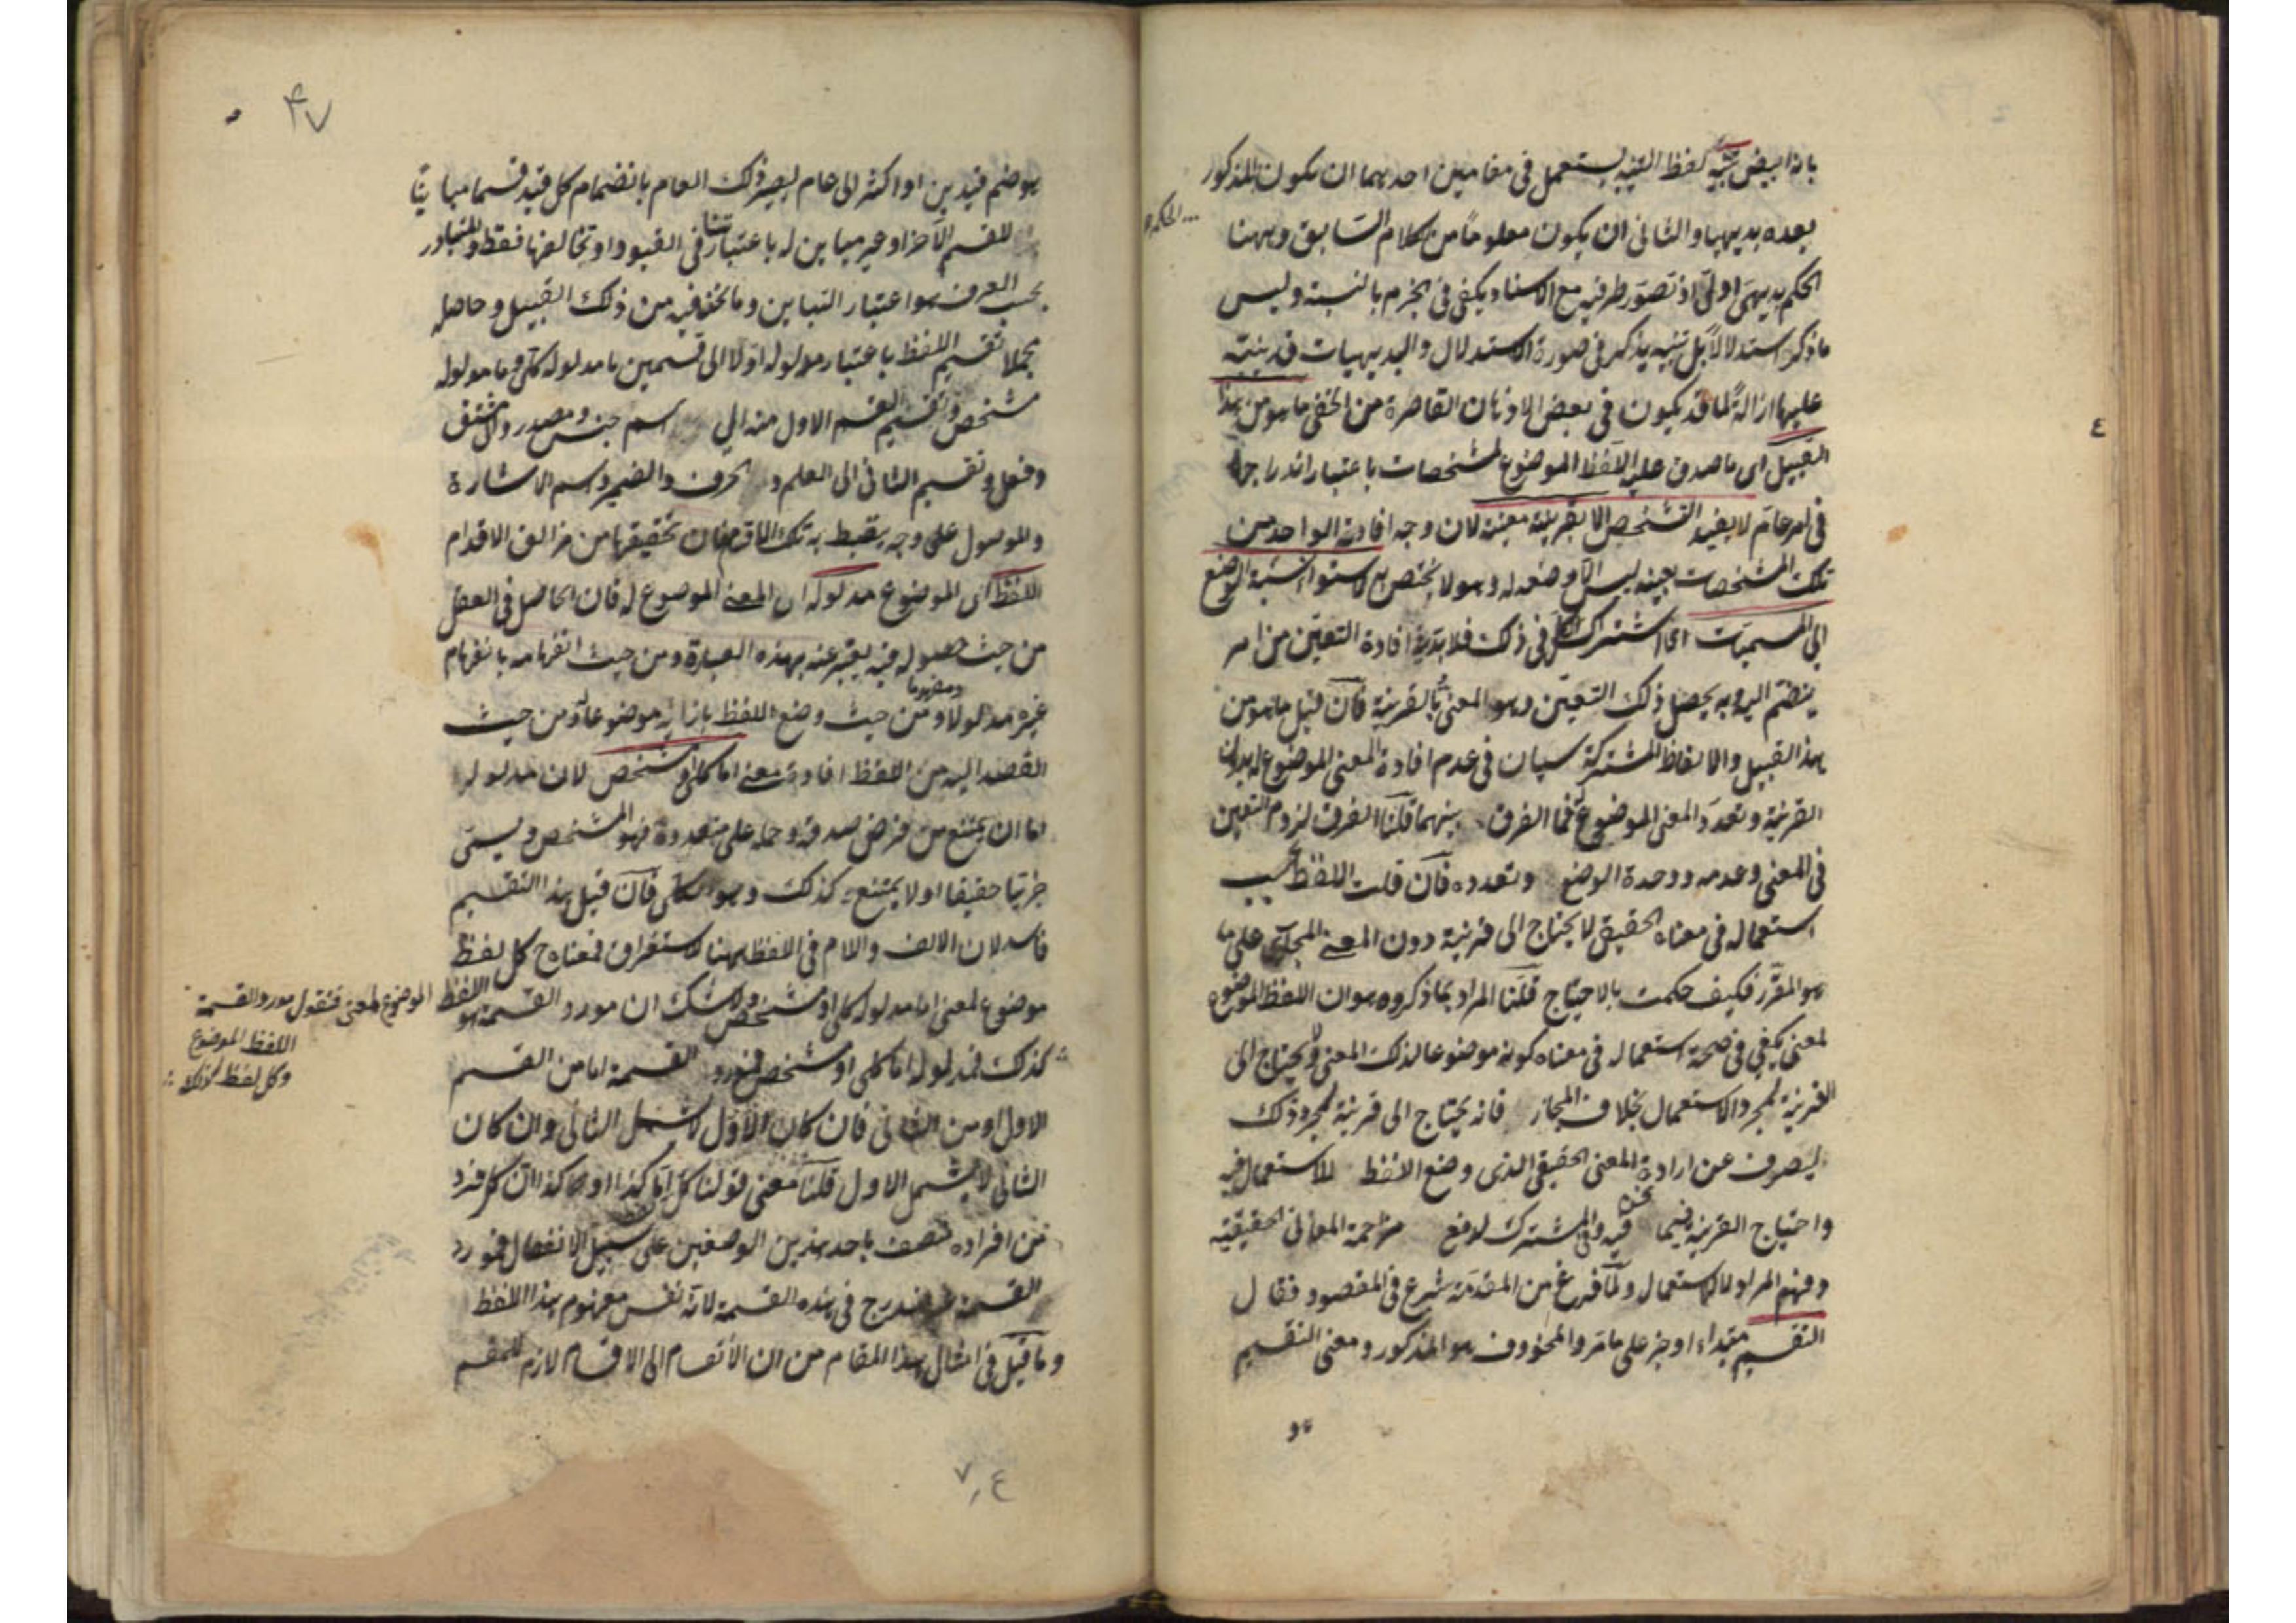 تنبيه لفظ التنبيه يستعمل في مقامين احديهما ان يكون المذكور
بعده بديهيا والثاني ان يكون معلوما من كلام السابق وههنا
الحكم بديهي اولي اذ تصور طرفيه مع الاسناد يكفي في الجزم بالنسبة وليس
ما ذكر استدلالا بل تنبيه يذكر في صورة الاستدلال والبديهيات قد ينبه
عليها ازالة لما قد يكون في بعض الاذهان القاصرة من الخفى ما هو من هذا
القبيل اى ما صدق عليه اللفظ الموضوع لمشخصات باعتبار اندراجها
في امر عام لا يفيد التشخص الا بقرينة معينة لان وجه افادته الواحد من
تلك المشخصات بعينه ليس الا وضعه له وهو لا يختص به لاستواء نسبة الوضع
الى المسميات اى اشتراك الكل في ذلك فلا بد في افادة التعين من امر
ينضم اليه وبه يحصل ذلك التعين وهو المعنى بالقرينة فان قيل ما هو من
هذا القبيل والالفاظ المشتركة سيان في عدم افادة المعنى الموضوع له بدون
القرينة وتعدد المعنى الموضوع له فما الفرق بينهما قلنا الفرق لزوم التعين
في المعنى وعدمه ووحدة الوضع وتعدده فان قلت اللفظ بحسب
استعماله في معناه الحقيقي لا يحتاج الى قرينة دون المعنى المجازى على ما
هو المقرر فكيف حكمت بالاحتياج قلنا المراد بما ذكروه هو ان اللفظ الموضوع
لمعنى يكفى في صحة استعماله في معناه كونه موضوعا لذلك المعنى ولا يحتاج الى
القرينة لمجرد الاستعمال بخلاف المجاز فانه يحتاج الى قرينة لمجرد ذلك
ليصرف عن ارادة المعنى الحقيقي الذى وضع اللفظ للاستعمال فيه
واحتياج القرينة فيما نحن فيه وفي المشترك لدفع مزاحمة المعاني الحقيقية
وفهم المراد لا للاستعمال ولما فرغ من المقدمة شرع في المقصود فقال
التقسيم مبتداء او خبر على ما مر والمحذوف هو المذكور ومعنى التقسيم
هو
٤
٤٧
هو ضم قيدين او اكثر الى عام ليصير ذلك العام بانضمام كل قيد قسما مباينا
للقسم الآخر او غير مباين له باعتبار تنافي القيود او تخالفها فقط والمتبادر
بحسب العرف هو اعتبار التباين وما نحن فيه من ذلك القبيل وحاصله
مجملا تقسيم اللفظ باعتبار مدلوله اولا الى قسمين ما مدلوله كلي وما مدلوله
مشخص وتقسيم القسم الاول منه الى اسم جنس ومصدر والمشتق
وفعل وتقسيم الثاني الى العلم والحرف والضمير واسم الاشارة
والموصول على وجه ينضبط به تلك الاقسام فان تحقيقها من مزالق الاقدام
اللفظ اى الموضوع مدلوله اى المعنى الموضوع له فان الحاصل في العقل
من حيث حصوله فيه يعبر عنه بهذه العبارة ومن حيث انفهامه بانفهام
غيره مدلولا ومفهوما ومن حيث وضع اللفظ بازائه موضوعا له ومن حيث
القصد اليه من اللفظ افادة معنى اما كلي او مشخص لان مدلوله
اما ان يمتنع من فرض صدقه وحمله على متعددة فهو المشخص ويسمى
جزئيا حقيقيا او لا يمتنع كذلك وهو الكلي فان قيل هذا التقسيم
فاسد لان الالف واللام في اللفظ ههنا للاستغراق فمعناه كل لفظ
موضوع لمعنى اما مدلوله كلي او مشخص ولا شك ان مورد القسمة هو اللفظ الموضوع لمعنى فنقول مورد القسمة
اللفظ الموضوع
وكل لفظ كذلك
كذلك فمدلوله اما كلي او مشخص فمورد القسمة اما من القسم
الاول او من الثاني فان كان الاول لا يشمل الثاني وان كان
الثاني لا يشمل الاول قلنا معنى قولنا كل اما كذا او كذا ان كل فرد
من افراده متصف باحد هذين الوصفين على سبيل الانفصال فمورد
القسمة لا يندرج في هذه القسمة لانه نفس مفهوم هذا اللفظ
وما قيل في امثال هذا المقام من ان الانقسام الى الاقسام لازم للمقسم